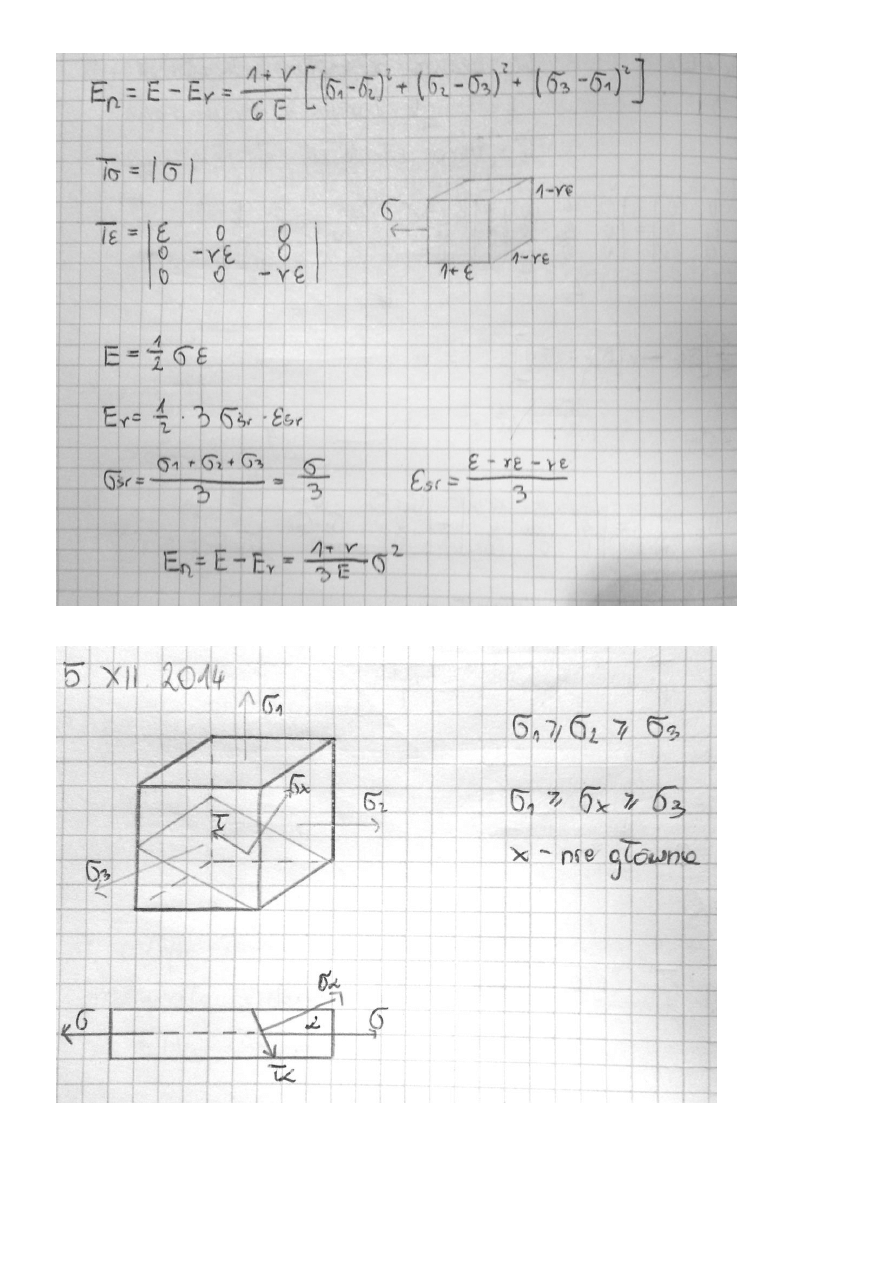 E_n = E - E_r = \frac{1+ν}{6E} [(σ1-σ2)² + (σ2-σ3)² + (σ3-σ1)²]
Tσ = |σ|
σ
1-νε
Tε = | ε 0 0 |
| 0 -νε 0 |
| 0 0 -νε |
1-νε
1+ε
E = \frac{1}{2} σε
E_r = \frac{1}{2} · 3 σśr · εśr
σśr = \frac{σ1+σ2+σ3}{3} = \frac{σ}{3} εśr = \frac{ε-νε-νε}{3}
E_n = E - E_r = \frac{1+ν}{3E} σ²
5. XII 2014
σ1
σ1 ≥ σ2 ≥ σ3
σx
σ2
σ1 ≥ σx ≥ σ3
τ
x - nie główne
σ3
σα
σ
α
σ
τα